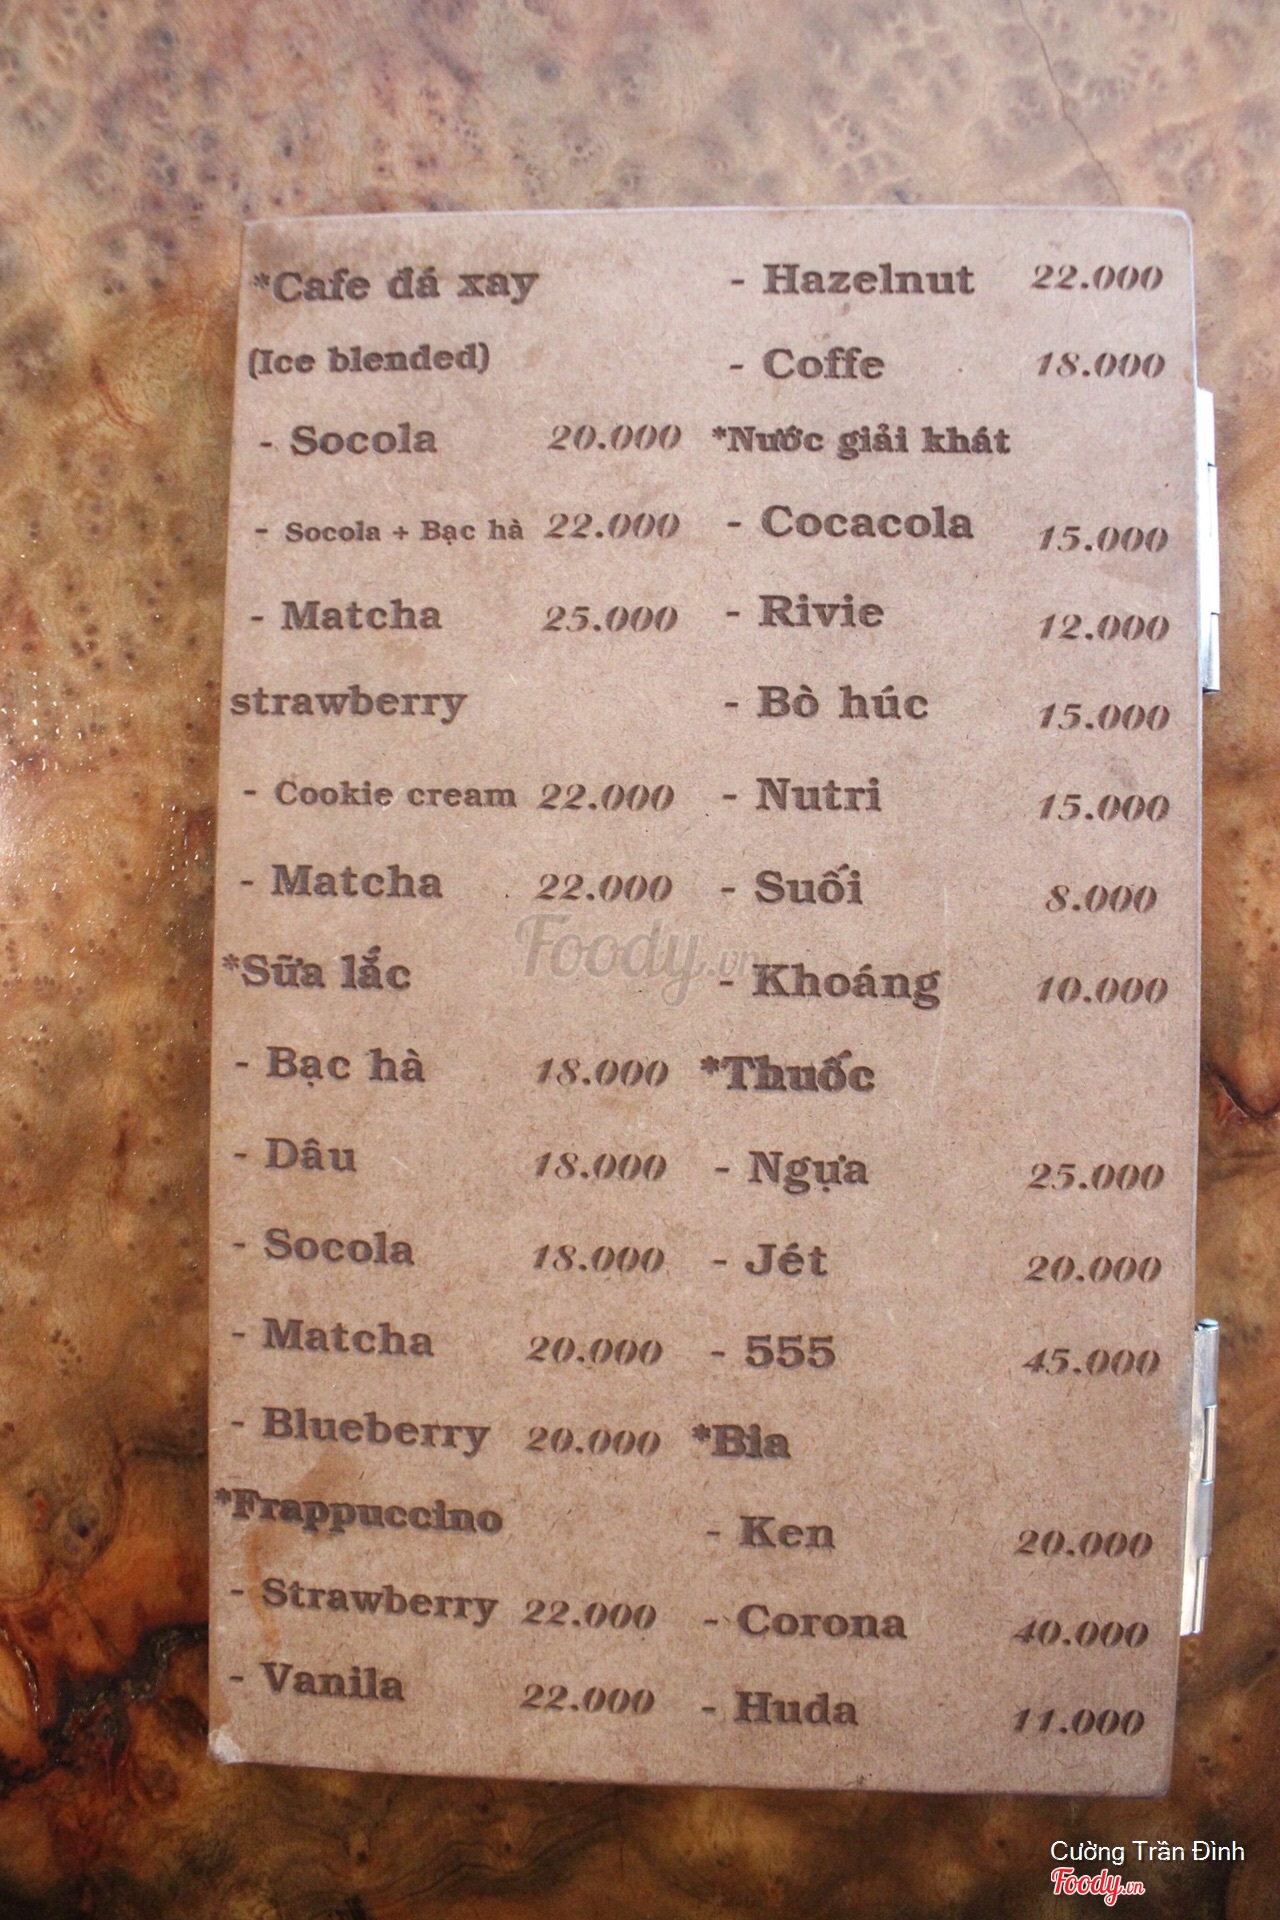 *Cafe đá xay
(Ice blended)
- Socola 20.000
- Socola + Bạc hà 22.000
- Matcha 25.000
strawberry
- Cookie cream 22.000
- Matcha 22.000
*Sữa lắc
- Bạc hà 18.000
- Dâu 18.000
- Socola 18.000
- Matcha 20.000
- Blueberry 20.000
*Frappuccino
- Strawberry 22.000
- Vanila 22.000
- Hazelnut 22.000
- Coffe 18.000
*Nước giải khát
- Cocacola 15.000
- Rivie 12.000
- Bò húc 15.000
- Nutri 15.000
- Suối 8.000
- Khoáng 10.000
*Thuốc
- Ngựa 25.000
- Jét 20.000
- 555 45.000
*Bia
- Ken 20.000
- Corona 40.000
- Huda 11.000
Foody.vn
Cường Trần Đình
Foody.vn